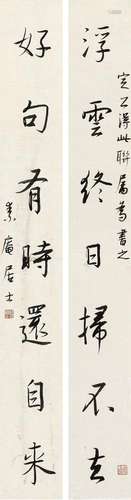 浮雲終日掃不去
定乙得此聯屬為書之
好句有時還自来
素庵居士